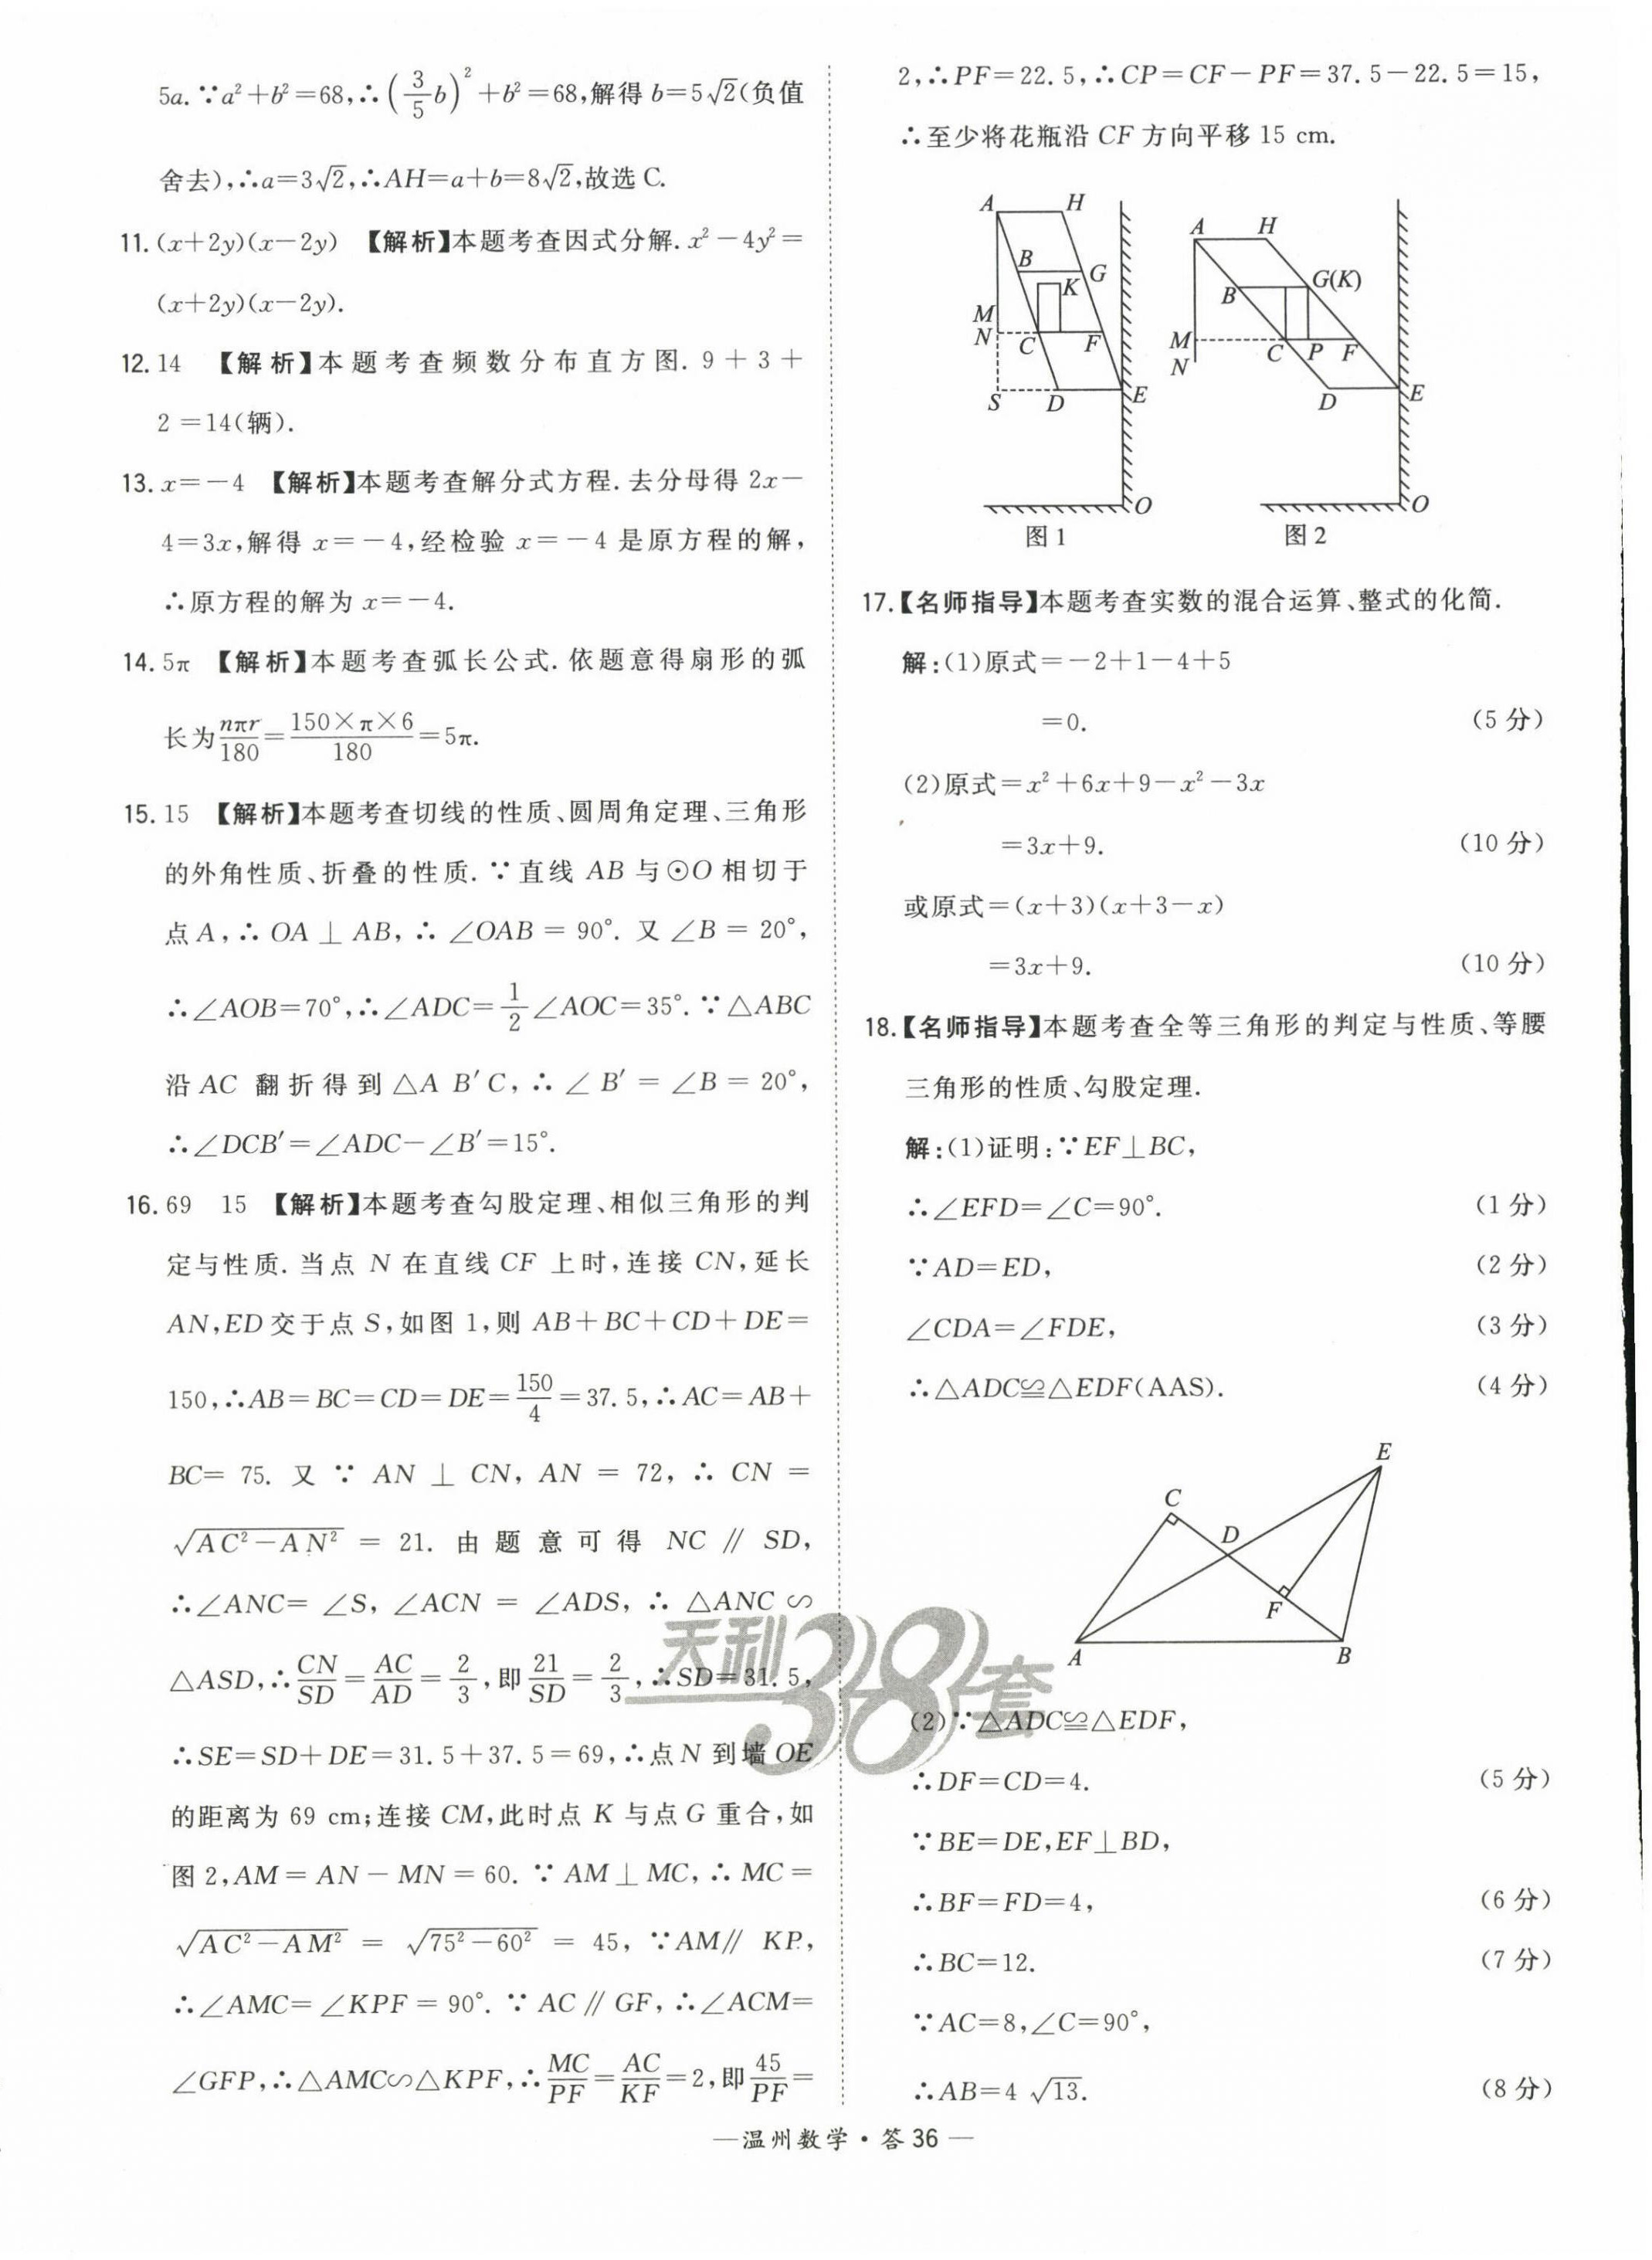 5a.∵a²+b²=68,∴(3/5 b)²+b²=68,解得 b=5√2(负值
舍去),∴a=3√2,∴AH=a+b=8√2,故选 C.
11. (x+2y)(x-2y) 【解析】本题考查因式分解. x²-4y²=
(x+2y)(x-2y).
12. 14 【解析】本题考查频数分布直方图. 9+3+
2=14(辆).
13. x=-4 【解析】本题考查解分式方程. 去分母得 2x-
4=3x,解得 x=-4,经检验 x=-4 是原方程的解,
∴原方程的解为 x=-4.
14. 5π 【解析】本题考查弧长公式. 依题意得扇形的弧
长为 nπr/180=150×π×6/180=5π.
15. 15 【解析】本题考查切线的性质、圆周角定理、三角形
的外角性质、折叠的性质. ∵直线 AB 与⊙O 相切于
点 A,∴OA⊥AB,∴∠OAB=90°. 又∠B=20°,
∴∠AOB=70°,∴∠ADC=1/2∠AOC=35°. ∵△ABC
沿 AC 翻折得到△A B′C,∴∠B′=∠B=20°,
∴∠DCB′=∠ADC-∠B′=15°.
16. 69 15 【解析】本题考查勾股定理、相似三角形的判
定与性质. 当点 N 在直线 CF 上时,连接 CN,延长
AN,ED 交于点 S,如图 1,则 AB+BC+CD+DE=
150,∴AB=BC=CD=DE=150/4=37.5,∴AC=AB+
BC=75. 又∵AN⊥CN,AN=72,∴CN=
√(AC²-AN²)=21. 由题意可得 NC∥SD,
∴∠ANC=∠S,∠ACN=∠ADS,∴△ANC∽
△ASD,∴CN/SD=AC/AD=2/3,即 21/SD=2/3,∴SD=31.5,
∴SE=SD+DE=31.5+37.5=69,∴点 N 到墙 OE
的距离为 69 cm;连接 CM,此时点 K 与点 G 重合,如
图 2,AM=AN-MN=60. ∵AM⊥MC,∴MC=
√(AC²-AM²)=√(75²-60²)=45,∵AM∥KP,
∴∠AMC=∠KPF=90°. ∵AC∥GF,∴∠ACM=
∠GFP,∴△AMC∽△KPF,∴MC/PF=AC/KF=2,即 45/PF=
2,∴PF=22.5,∴CP=CF-PF=37.5-22.5=15,
∴至少将花瓶沿 CF 方向平移 15 cm.
A H B G K M N C F S D E O
图 1
A H B G(K) M N C P F D E O
图 2
17.【名师指导】本题考查实数的混合运算、整式的化简.
解:(1)原式=-2+1-4+5
=0. (5 分)
(2)原式=x²+6x+9-x²-3x
=3x+9. (10 分)
或原式=(x+3)(x+3-x)
=3x+9. (10 分)
18.【名师指导】本题考查全等三角形的判定与性质、等腰
三角形的性质、勾股定理.
解:(1)证明:∵EF⊥BC,
∴∠EFD=∠C=90°. (1 分)
∵AD=ED, (2 分)
∠CDA=∠FDE, (3 分)
∴△ADC≌△EDF(AAS). (4 分)
E C D F A B
天利38套
(2)∵△ADC≌△EDF,
∴DF=CD=4. (5 分)
∵BE=DE,EF⊥BD,
∴BF=FD=4, (6 分)
∴BC=12. (7 分)
∵AC=8,∠C=90°,
∴AB=4 √13. (8 分)
—温州数学·答 36—